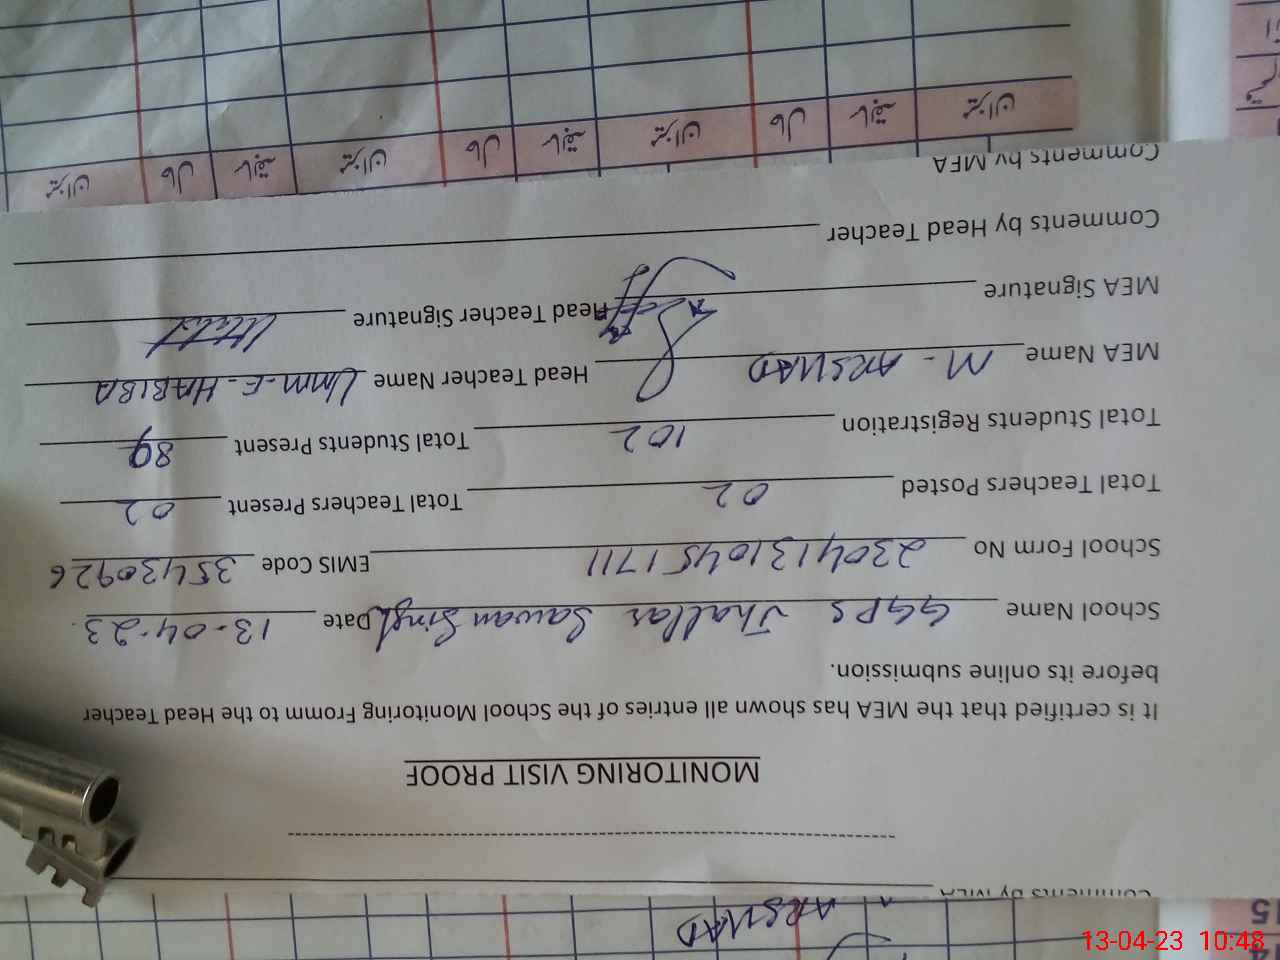 MONITORING VISIT PROOF
It is certified that the MEA has shown all entries of the School Monitoring Fromm to the Head Teacher
before its online submission.
School Name GGPS Jhallar Sawan Singh Date 13-04-23
School Form No 23041310451711 EMIS Code 35430926
Total Teachers Posted 02 Total Teachers Present 02
Total Students Registration 102 Total Students Present 89
MEA Name M-ARSHAD Head Teacher Name Umm-E-HABIBA
MEA Signature Head Teacher Signature
Comments by Head Teacher
Comments by MEA
میزان حال سابقہ میزان حال سابقہ میزان حال سابقہ میزان
Comments by MEA
ARSHAD
15
14
13-04-23 10:48